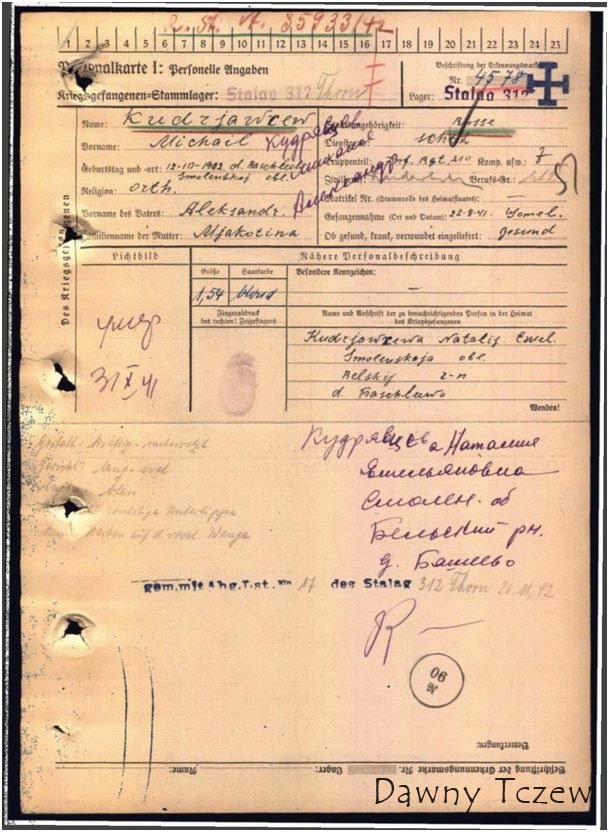 R. St. Vf. 35933/42
1 2 3 4 5 6 7 8 9 10 11 12 13 14 15 16 17 18 19 20 21 22 23
Personalkarte I: Personelle Angaben
Beschriftung der Erkennungsmarke
Nr. 4578
Kriegsgefangenen-Stammlager: Stalag 312 Thorn
Lager: Stalag 312
Des Kriegsgefangenen
Name: Kudrjawzew
Staatsangehörigkeit: Russe
Vorname: Michail
Кудрявцев
Михаил
Александр
Dienstgrad:
Geburtstag und -ort: 12-10-1902 d.
Smolenskoj obl.
Truppenteil: Inf. Rgt. 210 Komp. usw.: 7
Religion: orth.
Zivilberuf: Berufs-Gr.:
Matrikel Nr. (Stammrolle des Heimatstaates): —
Vorname des Vaters: Aleksandr.
Gefangennahme (Ort und Datum): 28-8-41. Gomel.
Familienname der Mutter: Mjakotina
Ob gesund, krank, verwundet eingeliefert: gesund
Lichtbild
Nähere Personalbeschreibung
Größe
Haarfarbe
Besondere Kennzeichen:
1,54 blond
—
Fingerabdruck
des rechten! Zeigefingers
Name und Anschrift der zu benachrichtigenden Person in der Heimat
des Kriegsgefangenen
умер
31 X 41
Kudrjawzewa Natalij. Emel.
Smolenskaja obl.
Belskij r-n
d. Baschlewo
Wenden!
Кудрявцева Наталия
Емельяновна
Смолен. об
Бельский рн.
д. Башево
Gestalt: kräftig-untersetzt
Gesicht: läng-oval
wulstige Unterlippe
Narben auf d. recht. Wange
gem.mit Abg.T.st. No 17 des Stalag 312 Thorn 26.11.42
R —
06
Bemerkungen:
Name:
Beschriftung der Erkennungsmarke Nr.
Lager:
Dawny Tczew